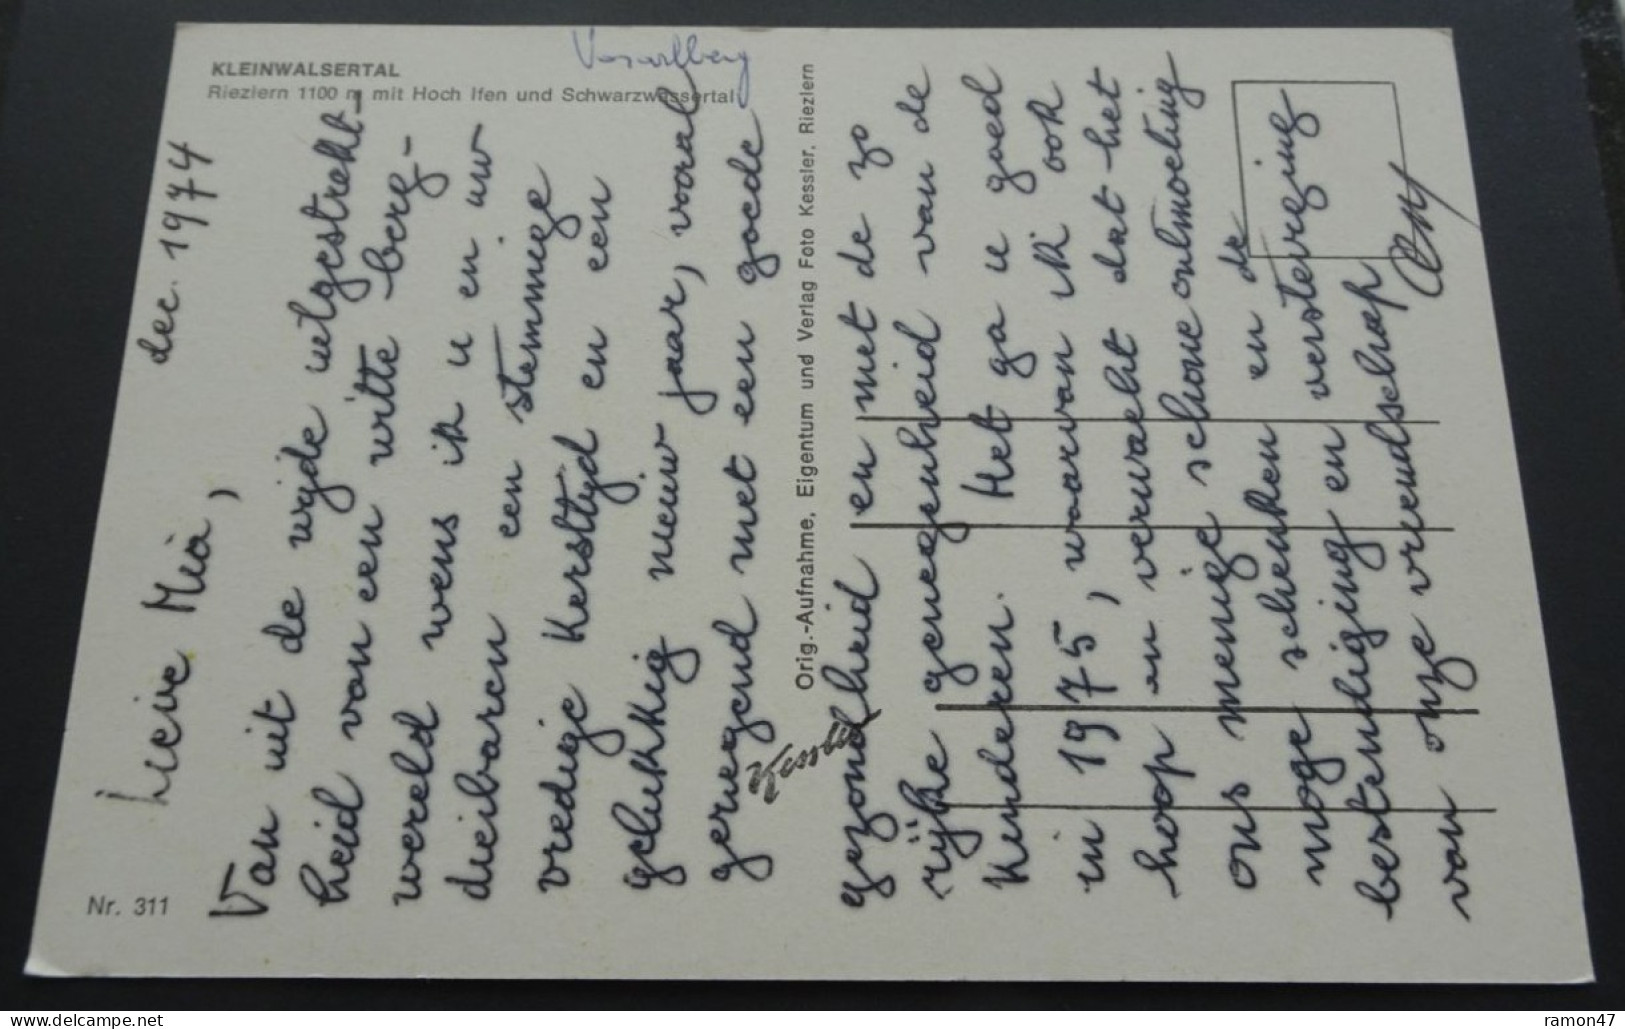 KLEINWALSERTAL
Riezlern 1100 m mit Hoch Ifen und Schwarzwassertal
Vorarlberg
Nr. 311
dec. 1974
Lieve Mia,
Van uit de wijde uitgestrekt-
heid van een witte berg-
wereld wens ik u en uw
dierbaren een stemmige
vredige Kersttyd en een
gelukkig nieuw jaar, vooral
gezegend met een goede
Orig.-Aufnahme, Eigentum und Verlag Foto Kessler, Riezlern
Kessler
gezondheid en met de zo
rijke genegenheid van de
kinderen. Het ga u goed
in 1975, waarvan ik ook
hoop en verwacht dat het
ons menige schone ontmoeting
moge schenken en de
bestendiging en versteviging
van onze vriendschap